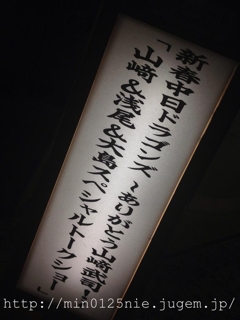 新春中日ドラゴンズ ～ありがとう山﨑武司～
「山﨑＆浅尾＆大島スペシャルトークショー」
http://min0125nie.jugem.jp/